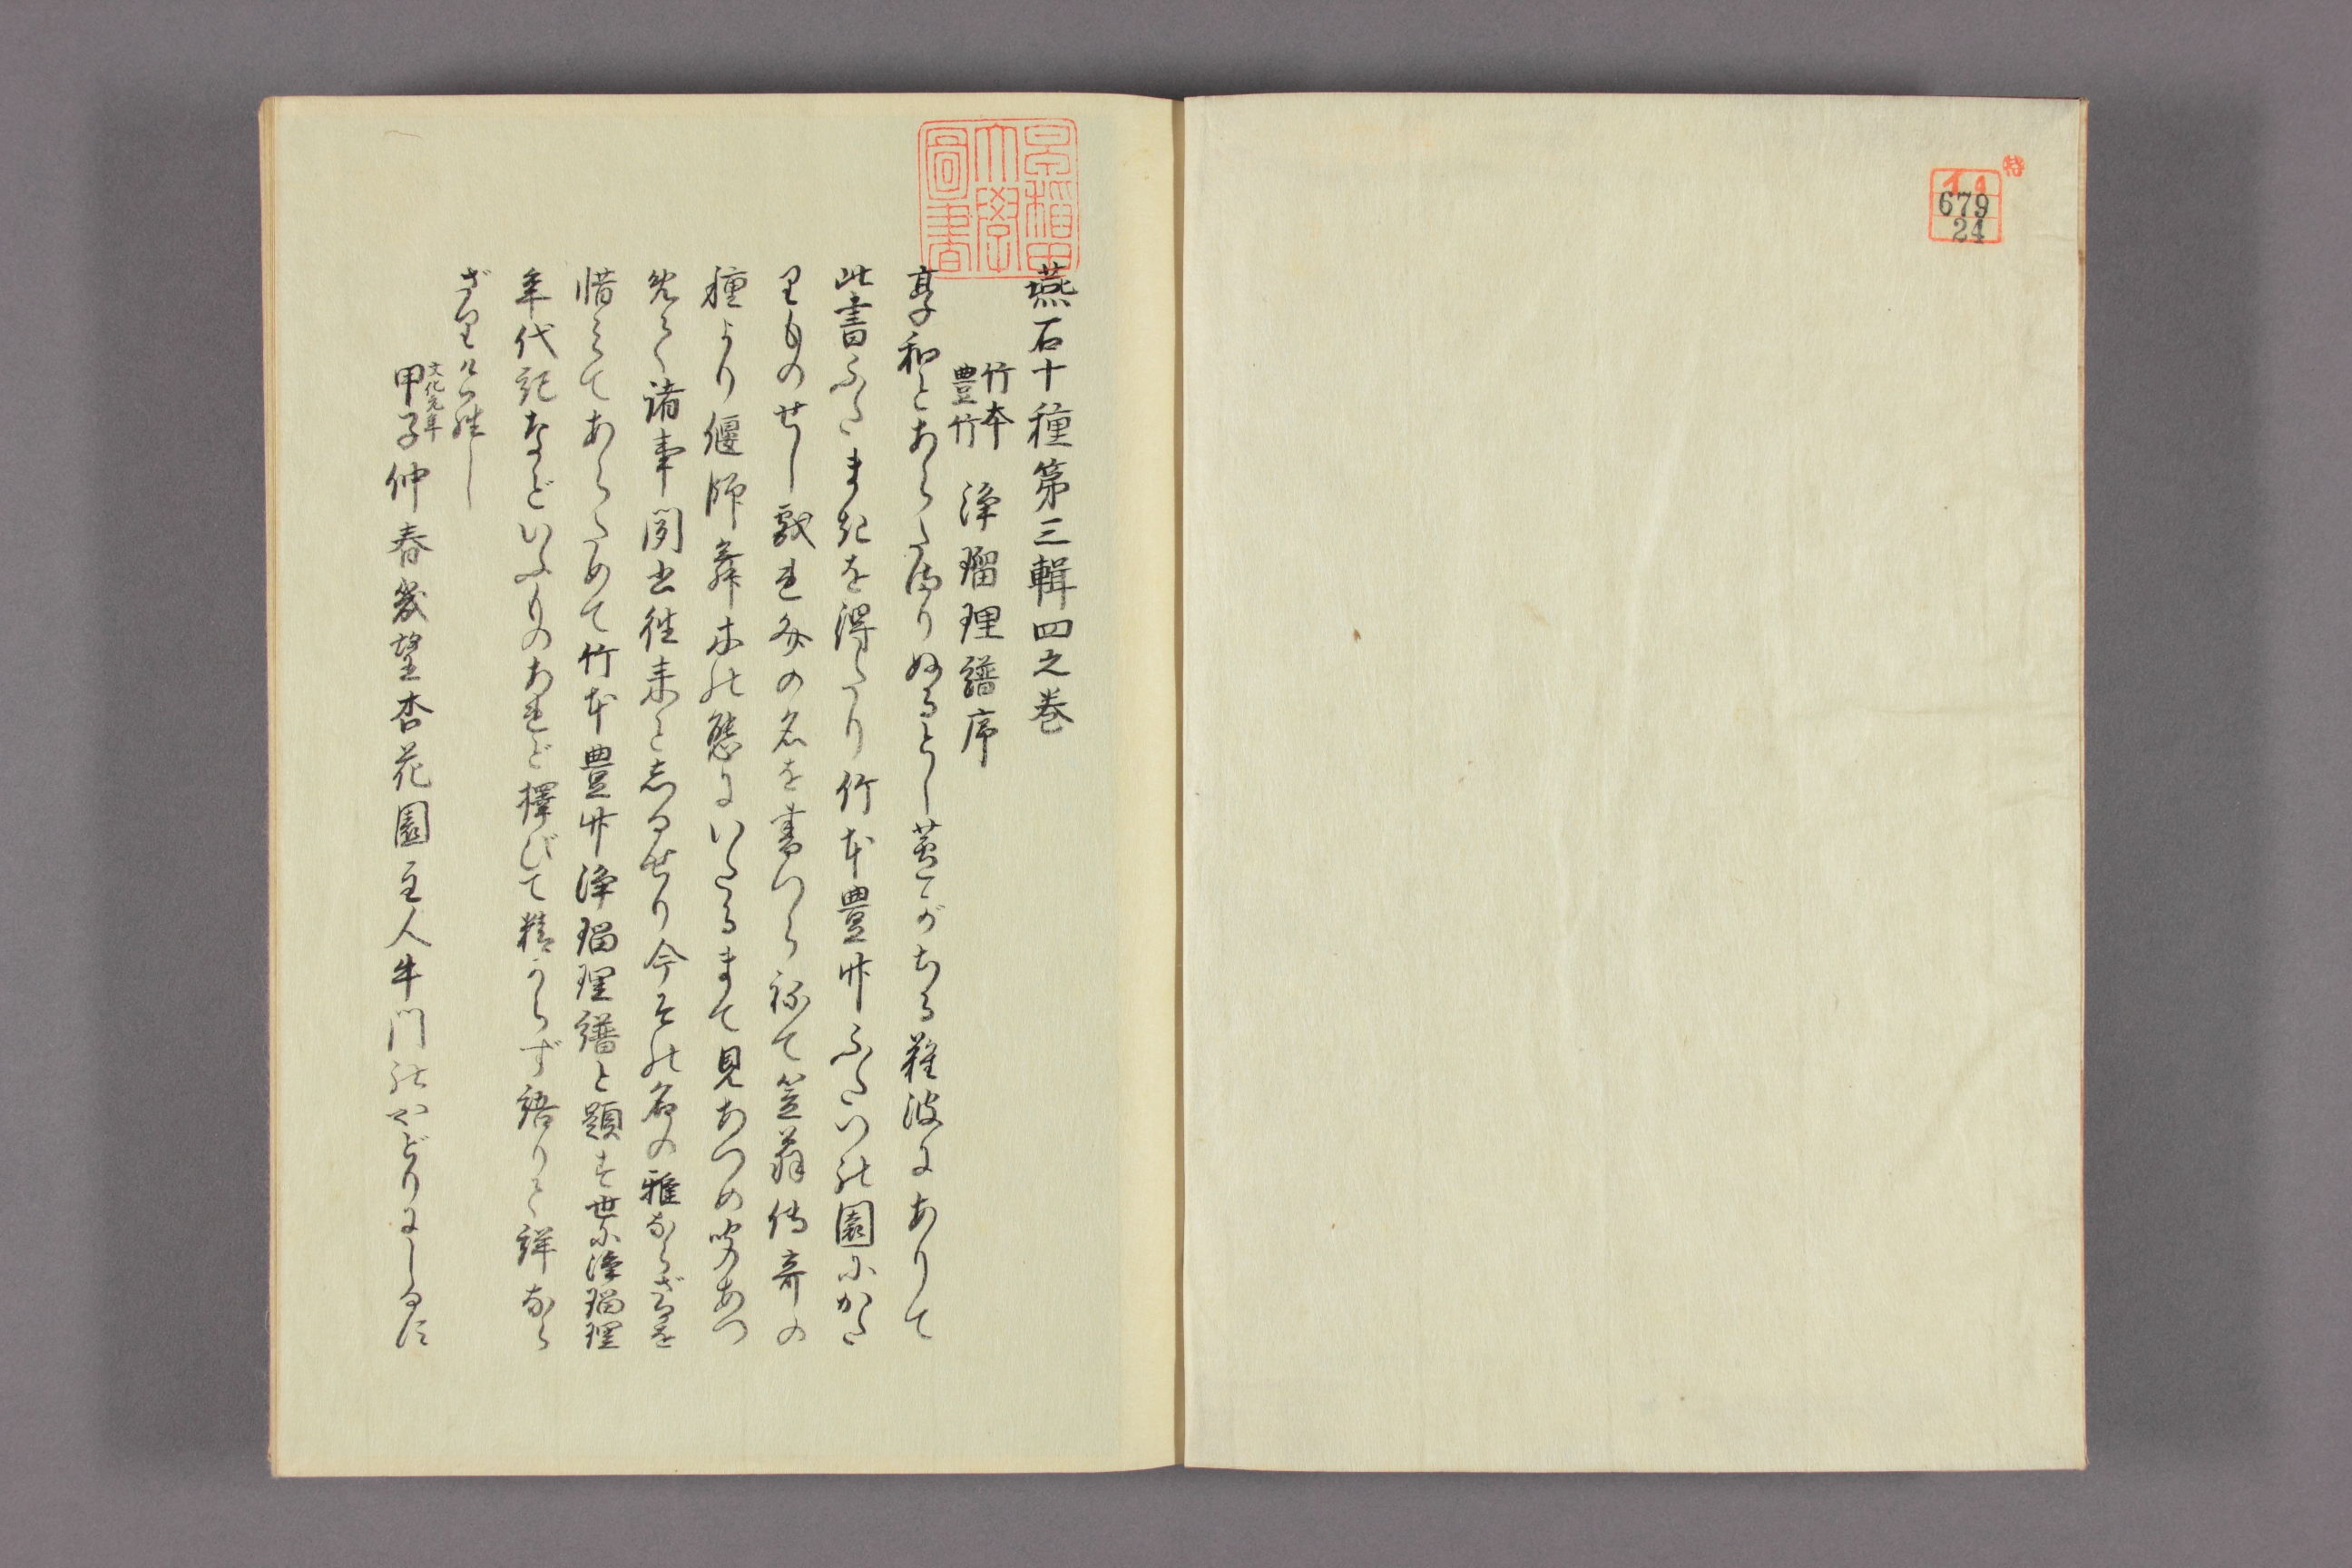 特
イ4
679
24
早稲田
大學
圖書
燕石十種第三輯四之巻
竹本
豊竹 浄瑠理譜序
享和とあらたまりぬるとし葦がちる難波にありて
此書ふたまきを得たり竹本豊竹ふたつの園にかた
りものせし戯れ文の名を書つらねて笠翁伝奇の
種より偃師舞木の態にいたるまて見あつめ聞あつ
めて諸事聞書往来としるせり今その名の雅ならざるを
惜みてあらためて竹本豊竹浄瑠理譜と題す世に浄瑠理
年代記などいふものあれど擇びて精からず語りて詳なら
ざりけらし
文化元年
甲子仲春幾望杏花園主人牛門のやどりにしるす